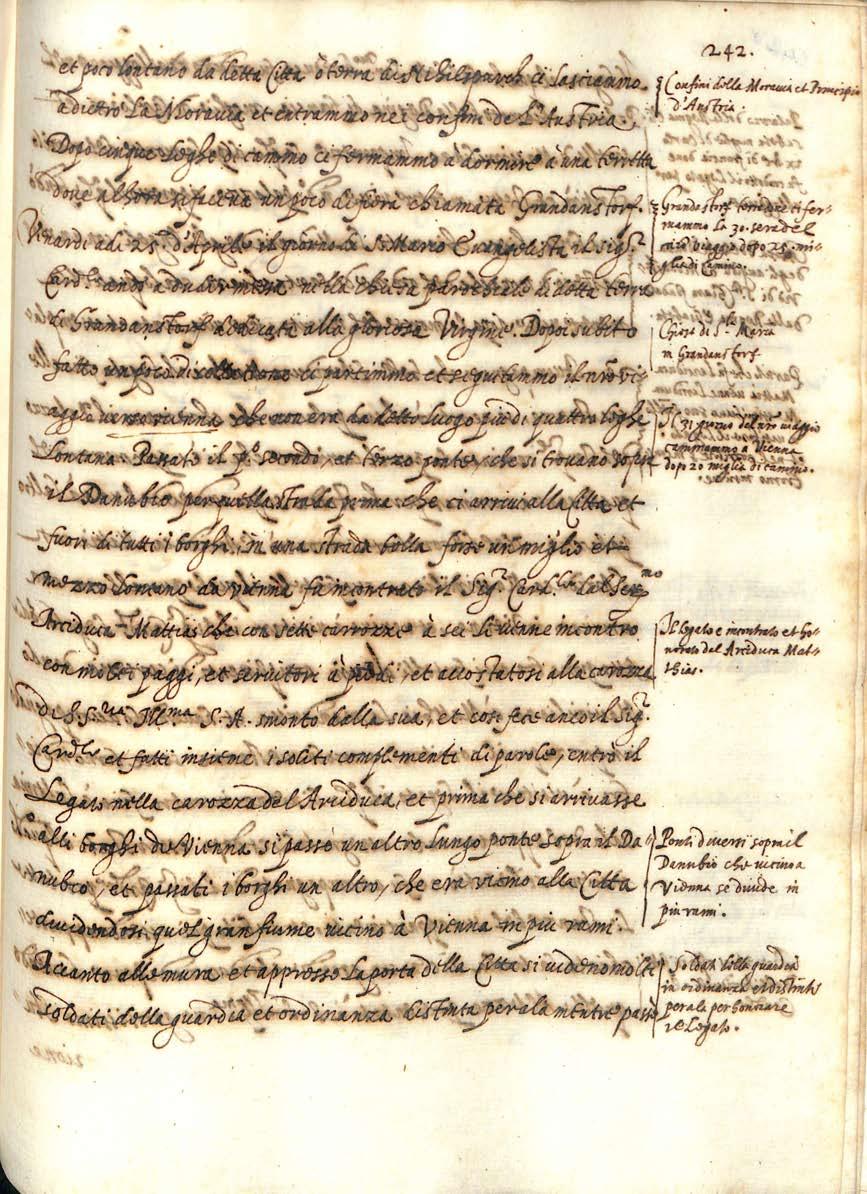 242.
et poco lontano da detta Città ò terra di Nihilspurch ci lasciammo
adietro la Moravia et entrammo nei confini de l'Austria.
Confini della Moravia et Principio
d'Austria.
Dopo cinque leghe di camino ci fermammo à dormire à una terretta
dove alhora si faceva un poco di fiera chiamata Grandanstorf.
Grandestorf terra dove ci fer-
mammo la 30. sera del
nr̃o viaggio dopo 25. mi-
glia di Camino.
Venardi adi 25. d'Aprile il giorno di S. Marco Evangelista il sig.r
Card.le andò a dir messa nella chiesa parochiale di detta terra
di Grandanstorf dedicata alla gloriosa Virgine. Dopoi subito
Chiesa di S.ta Maria
in Grandanstorf
fatto un poco di collettione ci partimmo et seguitammo il nr̃o vi-
aggio verso vienna che non era da detto luogo più di quattro leghe
lontana. Passato il p.o secondo, et terzo ponte, che si trovano sopra
Il 31 giorno del nr̃o viaggio
caminammo a Vienna
dopo 20 miglia di camino.
il Danubio per quella strada prima che ci arrivi alla Città et
fuori di tutti i borghi, in una strada bella forse un miglio et
mezzo lontano da vienna fu incontrato il Sig.r Card.le dal Ser.mo
Arciduca Mattias che con sette carrozze à sei li venne incontro
con molti paggi, et servitori à piedi, et accostatosi alla carozza
Il legato è incontrato et ho-
norato dal Arciduca Mat-
thias.
di S. S.ria Ill.ma S. A. smontò dalla sua, et così fece anco il Sig.r
Card.le et fatti insieme i soliti complementi di parole, entrò il
Legato nella carozza del Arciduca, et prima che si arrivasse
alli borghi di Vienna si passò un altro lungo ponte sopra il Da-
nubio, et passati i borghi un altro, che era vicino alla Città
dividendosi quel gran fiume vicino à Vienna in più rami.
Ponti diversi sopra il
Danubio che vicino a
Vienna se divide in
più rami.
Accanto alle mura et appresso la porta della Città si videno molti
soldati della guardia et ordinanza distinta per ala mentre passò
Soldati della guardia
in ordinanza et distinti
per ala per honorare
il Legato.